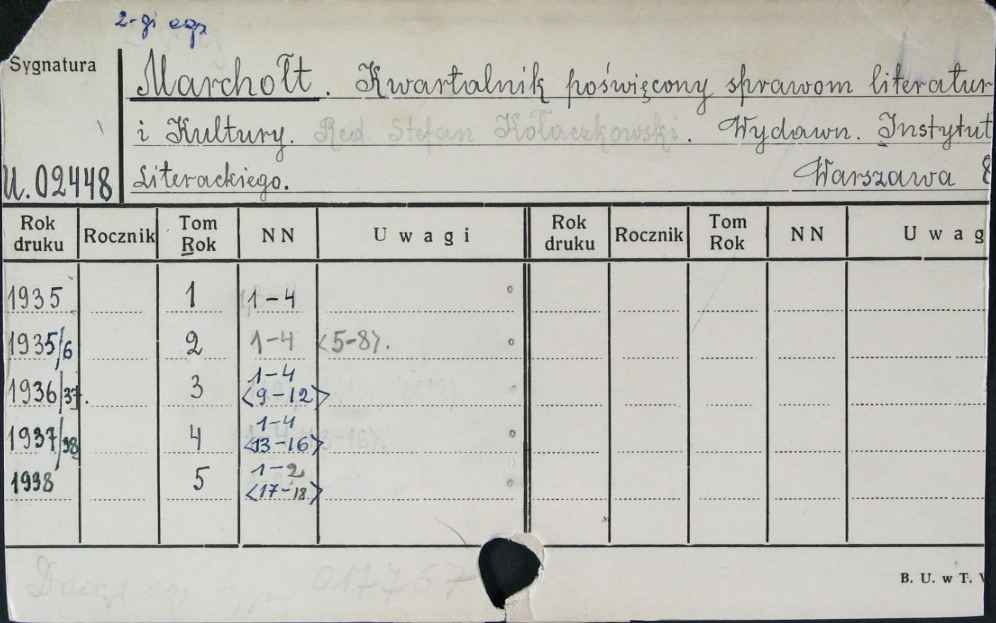 2-gi egz
Sygnatura
Marchołt. Kwartalnik poświęcony sprawom literatur
i Kultury. Red Stefan Kołaczkowski. Wydawn. Instytut
U.02448 Literackiego. Warszawa 8
Rok druku Rocznik Tom Rok NN Uwagi Rok druku Rocznik Tom Rok NN Uwag
1935 1 1-4
1935/6 2 1-4 <5-8>.
1936/37. 3 1-4 <9-12>
1937/38 4 1-4 <13-16>
1938 5 1-2 <17-18>
017757
B. U. w T.